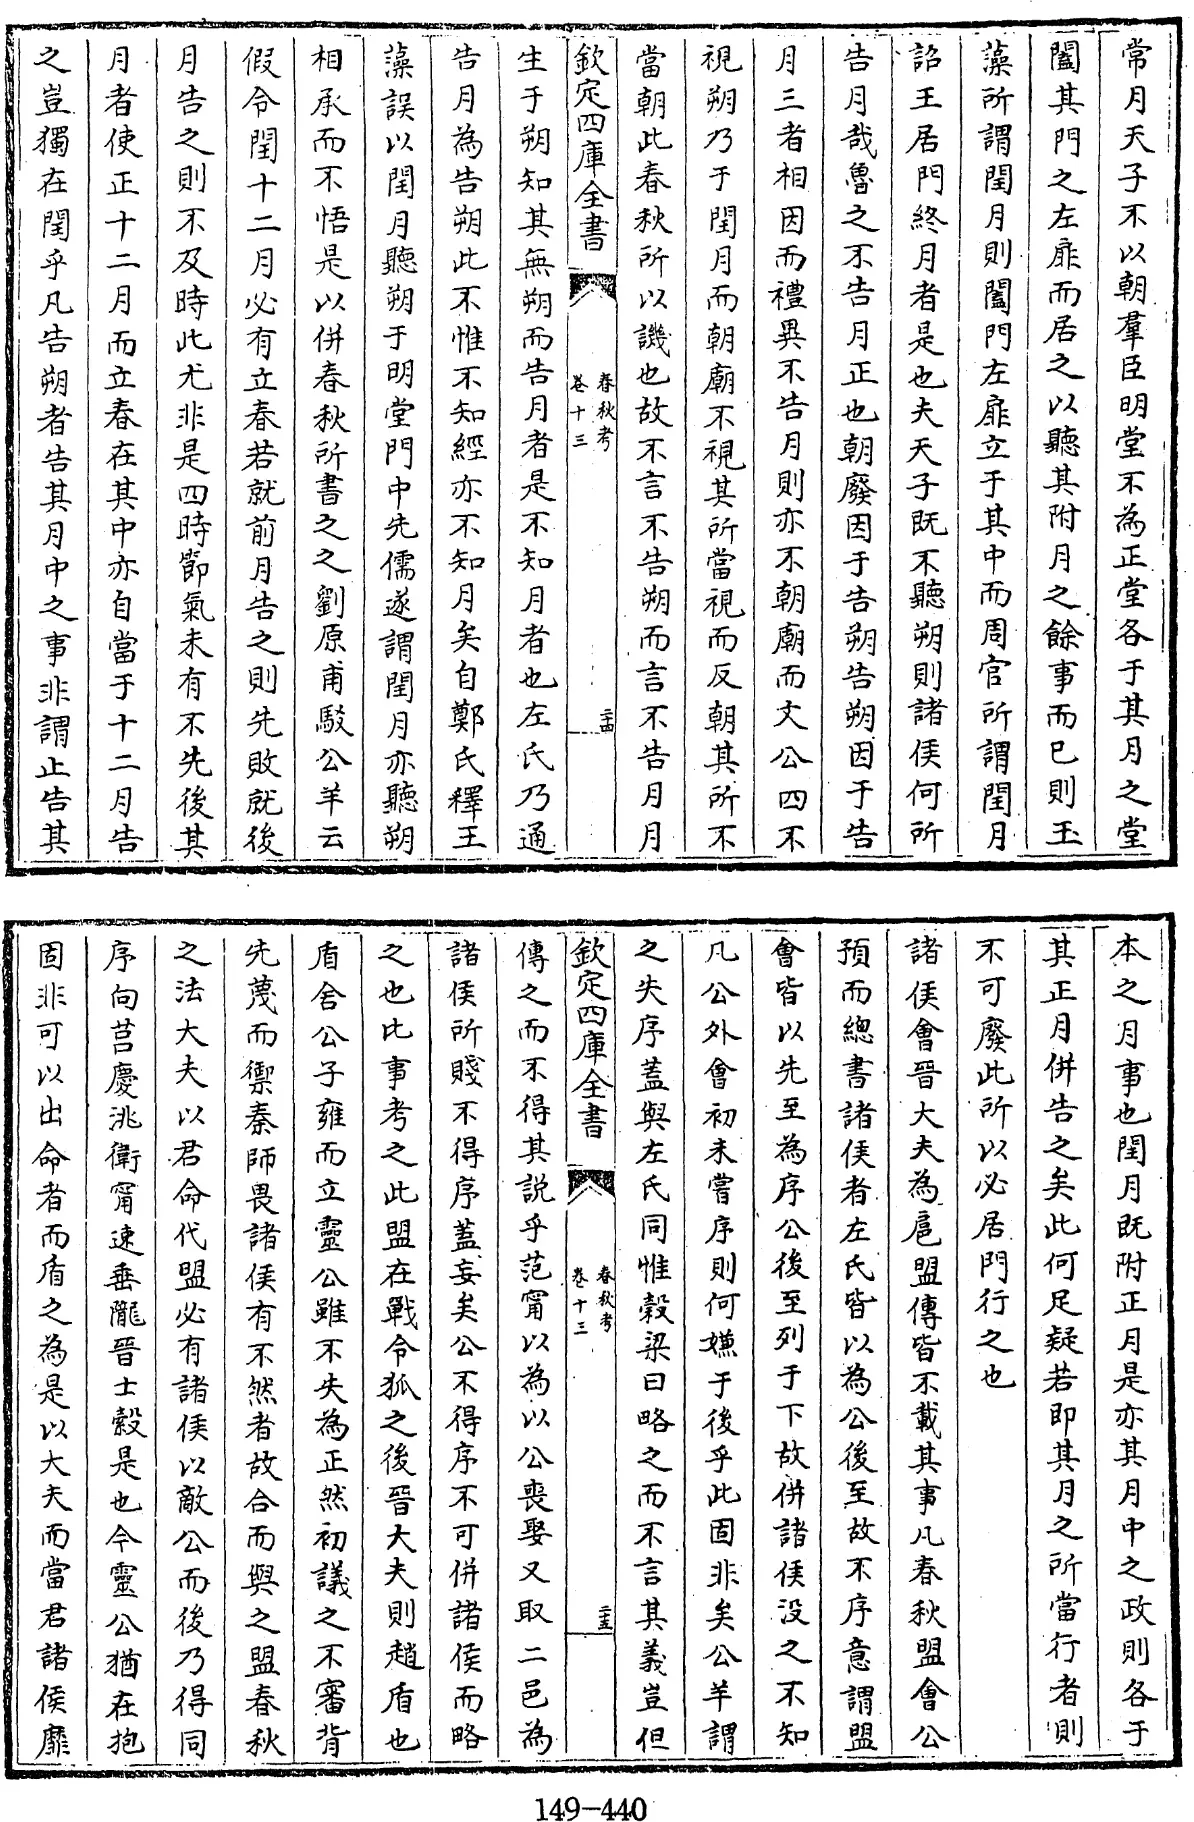 常月天子不以朝羣臣明堂不為正堂各于其月之堂
闔其門之左扉而居之以聽其附月之餘事而已則玉
藻所謂閏月則闔門左扉立于其中而周官所謂閏月
詔王居門終月者是也夫天子既不聽朔則諸侯何所
告月哉魯之不告月正也朝廢因于告朔告朔因于告
月三者相因而禮異不告月則亦不朝廟而文公四不
視朔乃于閏月而朝廟不視其所當視而反朝其所不
當朝此春秋所以譏也故不言不告朔而言不告月月
欽定四庫全書
春秋考
卷十三
二十四
生于朔知其無朔而告月者是不知月者也左氏乃通
告月為告朔此不惟不知經亦不知月矣自鄭氏釋王
藻誤以閏月聽朔于明堂門中先儒遂謂閏月亦聽朔
相承而不悟是以併春秋所書之之劉原甫駁公羊云
假令閏十二月必有立春若就前月告之則先敗就後
月告之則不及時此尤非是四時節氣未有不先後其
月者使正十二月而立春在其中亦自當于十二月告
之豈獨在閏乎凡告朔者告其月中之事非謂止告其
本之月事也閏月既附正月是亦其月中之政則各于
其正月併告之矣此何足疑若即其月之所當行者則
不可廢此所以必居門行之也
諸侯會晉大夫為扈盟傳皆不載其事凡春秋盟會公
預而總書諸侯者左氏皆以為公後至故不序意謂盟
會皆以先至為序公後至列于下故併諸侯没之不知
凡公外會初未嘗序則何嫌于後乎此固非矣公羊謂
之失序蓋與左氏同惟穀梁曰略之而不言其義豈但
欽定四庫全書
春秋考
卷十三
二十五
傳之而不得其説乎范甯以為以公喪娶又取二邑為
諸侯所賤不得序蓋妄矣公不得序不可併諸侯而略
之也比事考之此盟在戰令狐之後晉大夫則趙盾也
盾舍公子雍而立靈公雖不失為正然初議之不審背
先蔑而禦秦師畏諸侯有不然者故合而與之盟春秋
之法大夫以君命代盟必有諸侯以敵公而後乃得同
序向莒慶洮衛甯速垂隴晉士縠是也今靈公猶在抱
固非可以出命者而盾之為是以大夫而當君諸侯靡
149-440